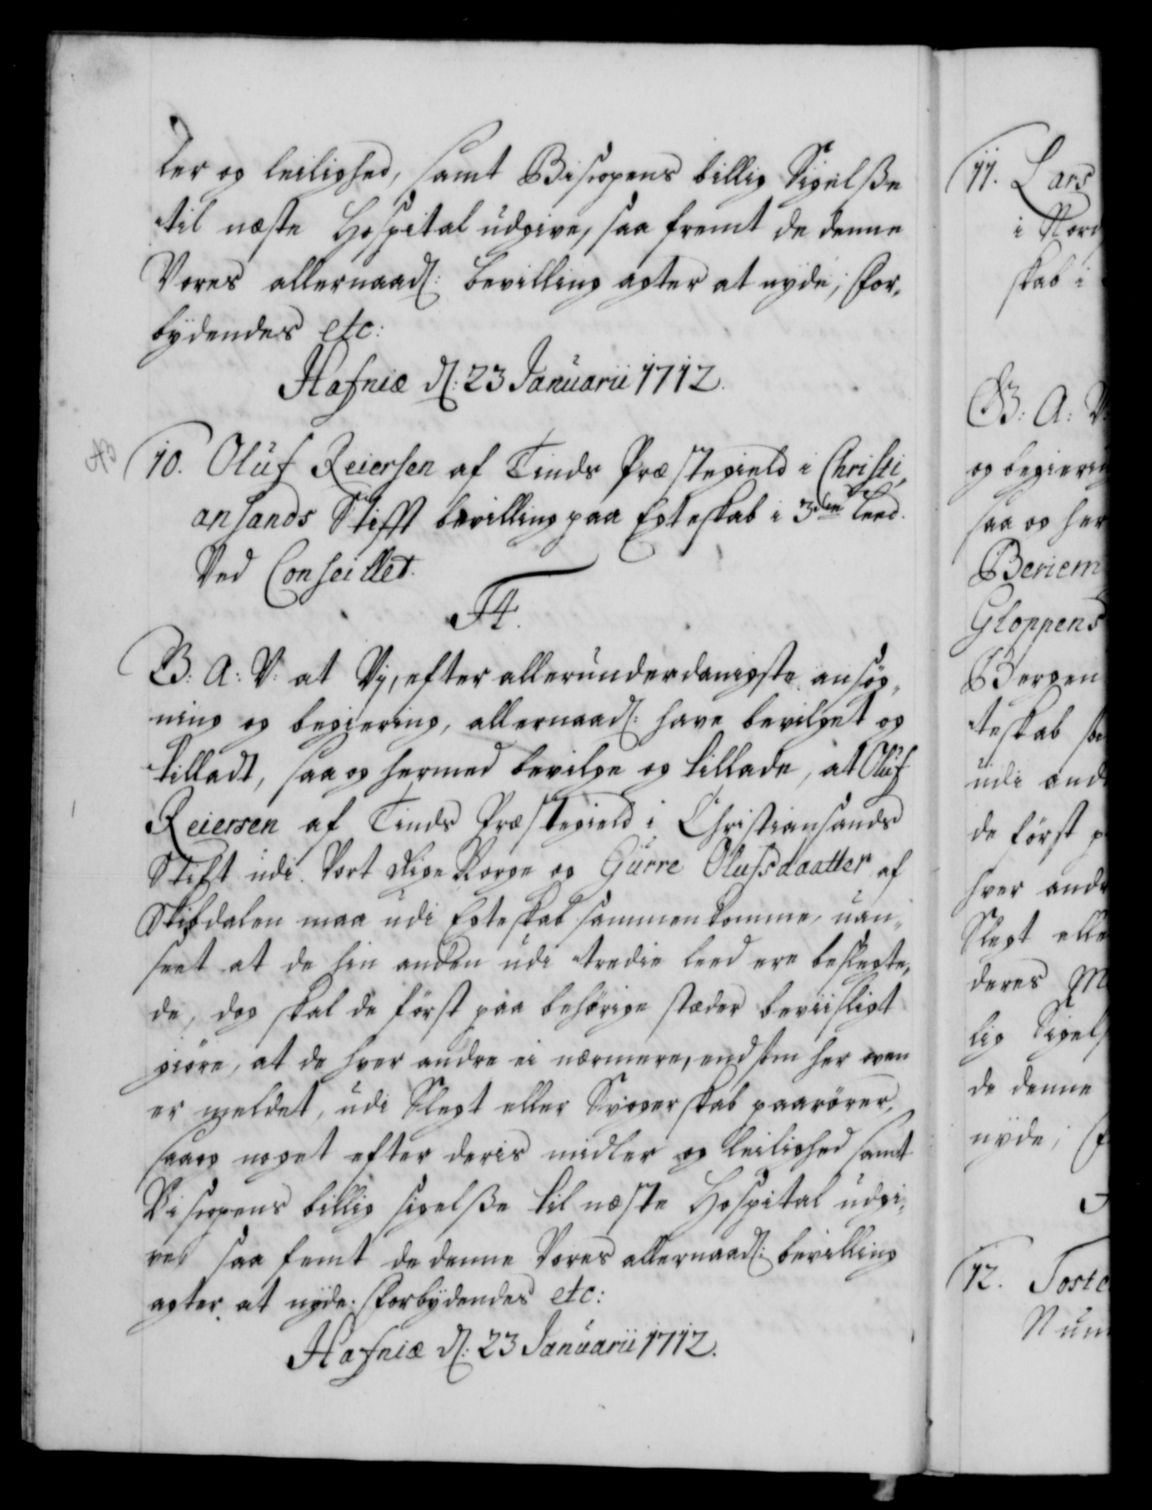 ler og leilighed, samt Biscopens billig Sigelsse
til næste Hospital udgive, saa fremt de denne
Vores allernaad: bevilling agter at nyde; for,
bydendes etc:
Hafniæ d: 23 Januarii 1712.
10. Oluf Reiersen af Tinds Præstegield i Christi,
ansands Stifft bevilling paa Egteskab i 3die Leed.
Ved Conseillet.
F4.
B: A: V: at Vj, efter allerunderdanigste ansøg,
ning og begiering, allernaad: have bevilget og
tilladt, saa og hermed bevilge og tillade, at Oluf
Reiersen af Tinds Præstegield i Christiansands
Stift udi Vort Rige Norge og Gurre Olufsdaatter af
maa udi Egteskab sammenkomme, uan,
seet at de hin anden udi tredie leed ere beslegte,
de, dog skal de først paa behørige stæder beviisligt
giøre, at de hver andre ei nærmere, end som her oven
er meldet, udi Slegt eller Svogerskab paarører,
saa og noget efter deris midler og leilighed samt
Biscopens billig sigelsse til næste Hospital udgi,
ve, saa femt de denne Vores allernaad: bevilling
agter at nyde. forbydendes etc:
Hafniæ d: 23 Januarii 1712.
11. Lars
i Nord
skab i
B: A: V
og begierin
saa og her
Beriem
Gloppens
Bergen
teskab
udi and
de først p
hver andr
Slegt elle
deres M
lig Sigels
de denne
nyde; f
12. Toste
Num